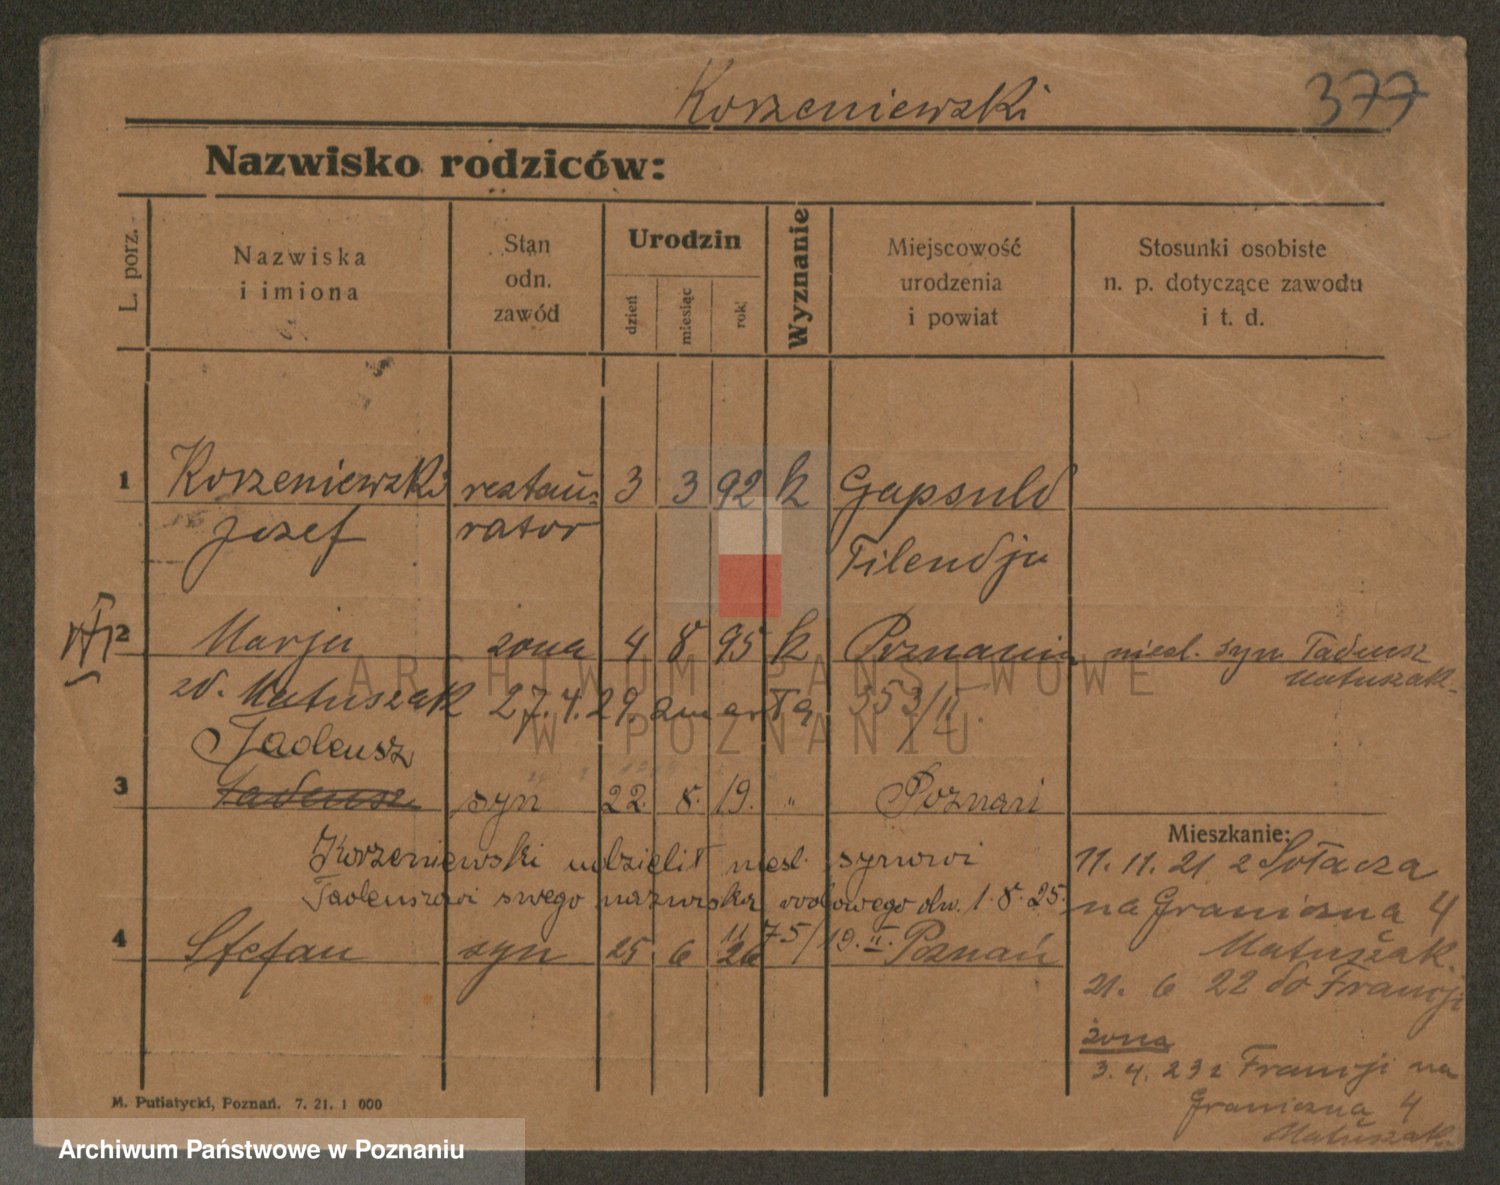 Korzeniewski
377
Nazwisko rodziców:
L. porz.
Nazwiska
i imiona
Stan
odn.
zawód
Urodzin
dzień
miesiąc
rok
Wyznanie
Miejscowość
urodzenia
i powiat
Stosunki osobiste
n. p. dotyczące zawodu
i t. d.
1 Korzeniewski restau- 3 3 92 k Gapsuld
Jozef rator
Filendja
2 Marja żona 4 8 95 k Poznania niesl. syn Tadeusz
Matuszak
zd. Matuszak 27.4.29. zmarła 353/II
Tadeusz
3 Tadeusz syn 22. 8. 19. " Poznań
Mieszkanie:
Korzeniewski udzielił niesl. synowi
Tadeuszowi swego nazwiska rodowego dn. 1.8.25.
11. 11. 21 z Sołacza
na Graniczną 4
Matuszak.
4 Stefan syn 25. 6 26 75/19.II. Poznań
21. 6 22 do Francji
żona
3. 4. 23 z Francji na
Graniczną 4
Matuszak
M. Putiatycki, Poznań. 7. 21. 1 000
ARCHIWUM PAŃSTWOWE
W POZNANIU
Archiwum Państwowe w Poznaniu